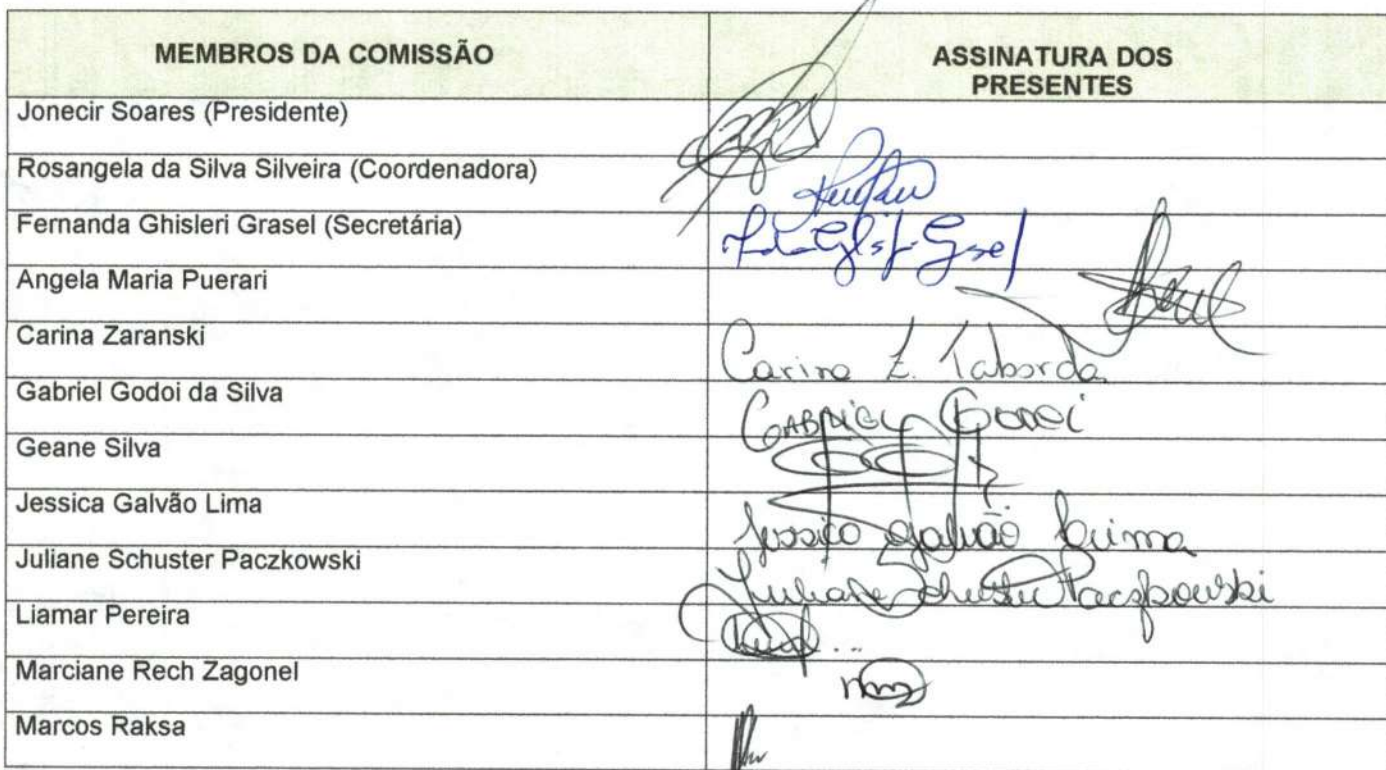 MEMBROS DA COMISSÃO
ASSINATURA DOS
PRESENTES
Jonecir Soares (Presidente)
Rosangela da Silva Silveira (Coordenadora)
Fernanda Ghisleri Grasel (Secretária)
Angela Maria Puerari
Carina Zaranski
Carina Z. Taborda
Gabriel Godoi da Silva
GABRIEL GODOI
Geane Silva
Jessica Galvão Lima
Jessica Galvão Lima
Juliane Schuster Paczkowski
Juliane Schuster Paczkowski
Liamar Pereira
Marciane Rech Zagonel
Marcos Raksa